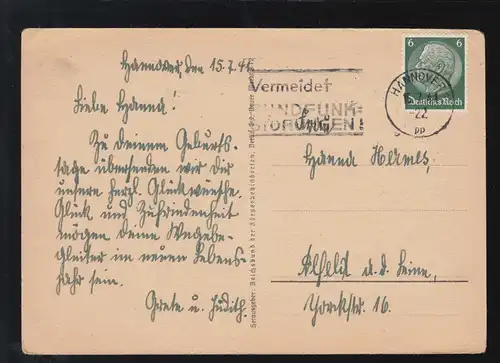 Hannover, den 15.7.41
Liebe Hanna!
Zu Deinem Geburts-
tage übersenden wir Dir
unsere herzl. Glückwünsche.
Glück und Zufriedenheit
mögen Deine Wegebe-
gleiter im neuen Lebens-
jahr sein.
Grete u. Judith.
Vermeidet
RUNDFUNK-
STÖRUNGEN!
HANNOVER
22
pp
6 6
Deutsches Reich
Hanna Hermes,
Alfeld a. d. Leine,
Yorckstr. 16.
Herausgeber: Reichsbund der Körperbehinderten,